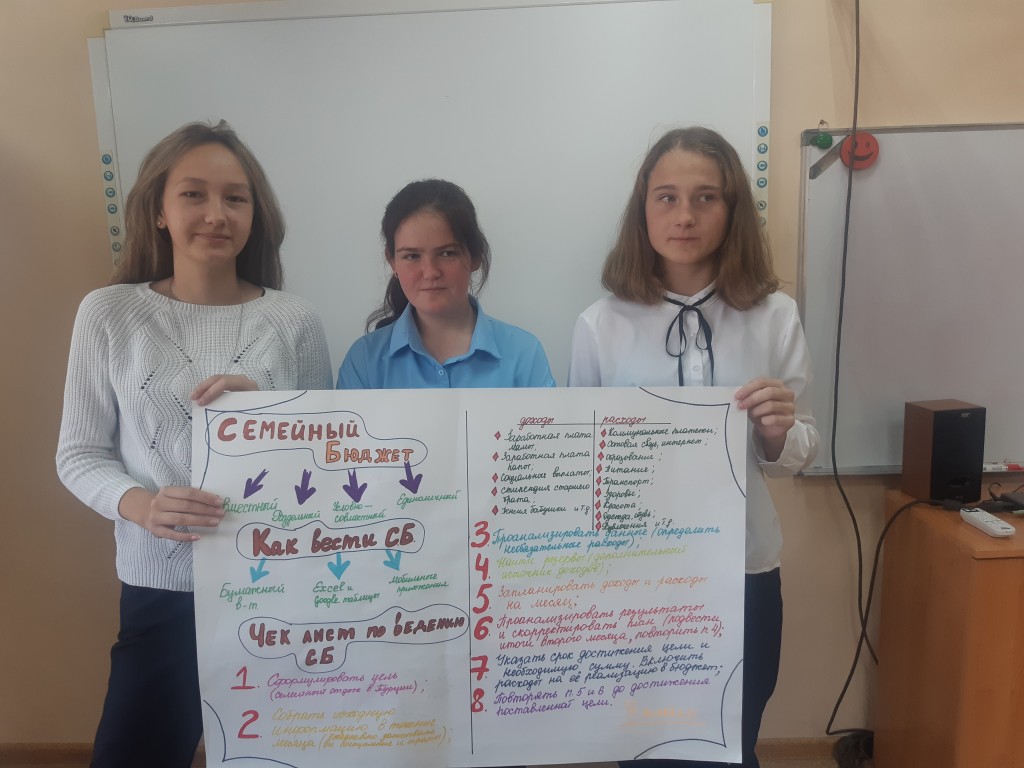 СЕМЕЙНЫЙ
БЮДЖЕТ
Раздельный
Условно-
совместный
Единоличный
КАК ВЕСТИ СБ
Бумажный
в-т
google таблицы
Мобильные
приложения
ЧЕК ЛИСТ ПО ВЕДЕНИЮ
СБ
1. Сформулировать цель
(семейный отдых в Турции);
2. Собрать исходную
информацию в течение
месяца
доходы
Заработная плата
мамы;
Заработная плата
папы;
Социальные выплаты;
стипендия старшего
брата;
Пенсия бабушки и т.д
расходы
Коммунальные платежи;
Сотовая связь, интернет;
образование;
Питание;
Транспорт;
Здоровье;
Красота;
Одежда, обувь;
и т.д
3. Проанализировать данные (определить
необязательные расходы);
4. Найти резервы (дополнительный
источник доходов);
5. Запланировать доходы и расходы
на месяц;
6. Проанализировать результаты
и скорректировать план (подвести
итоги второго месяца, повторить п 4);
7. Указать срок достижения цели и
необходимую сумму. Включить
расходы на её реализацию в бюджет;
8. Повторять п. 5 и 6 до достижения
поставленной цели.